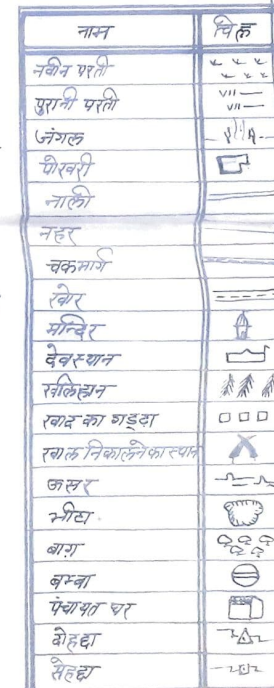 नाम चिह्न
नवीन परती
पुरानी परती
जंगल
पोखरी
नाली
नहर
चकमार्ग
खोर
मन्दिर
देवस्थान
खलिहान
खाद का गड्ढा
खाल निकालने का स्थान
ऊसर
भीटा
बाग
बम्बा
पंचायत घर
दोहद्दा
सेहद्दा